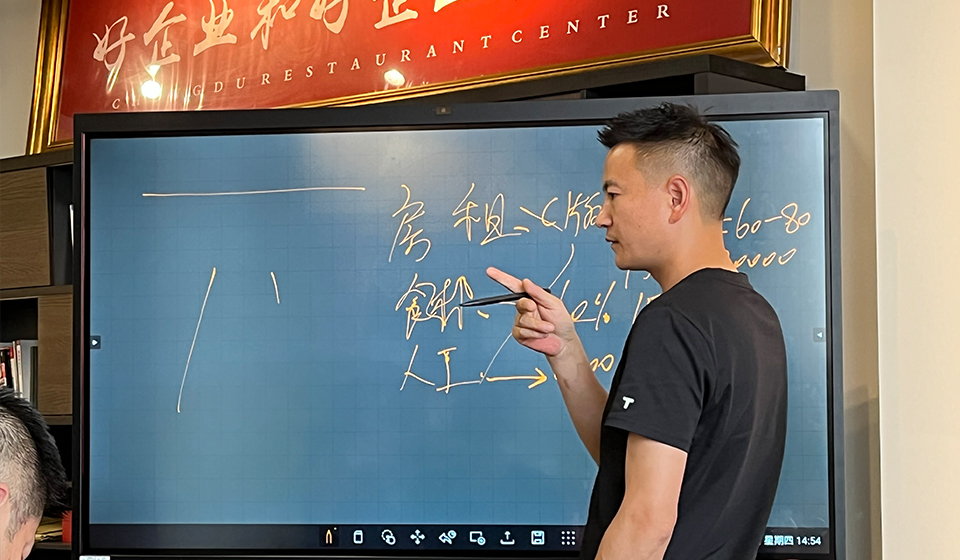 好企业和好企
CHENGDU RESTAURANT CENTER
房租、 =60-80
0000
食材、 62%
人工、→ 00
T
星期四 14:54